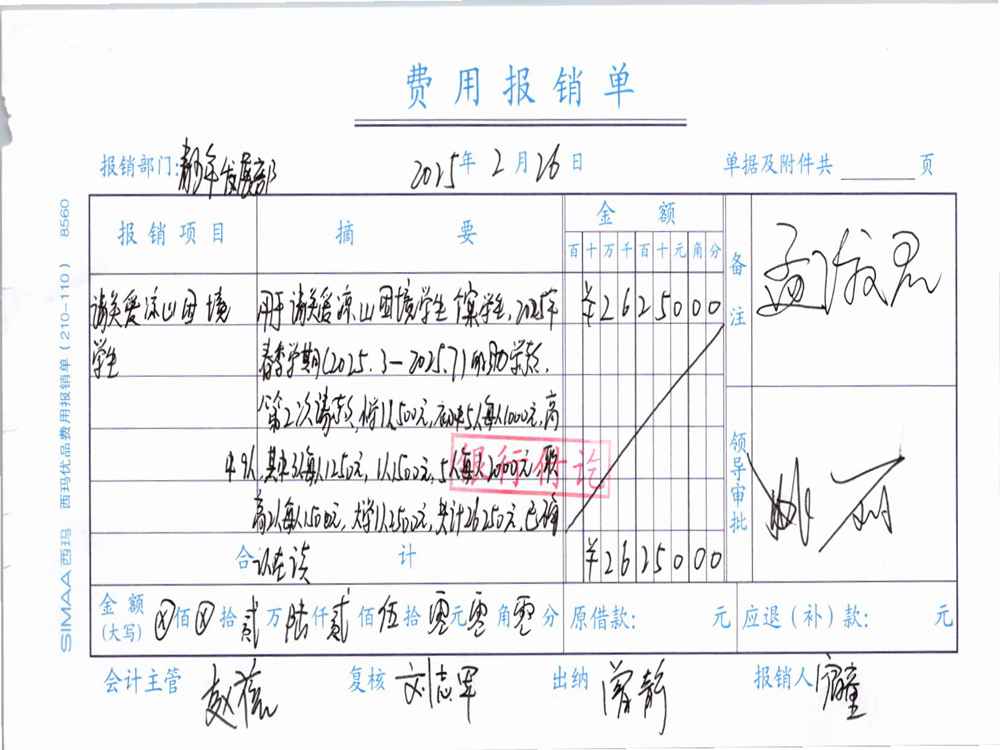 费用报销单
报销部门:青少年发展部 2025年2月26日 单据及附件共 页
报销项目 摘要 金额 备注
百十万千百十元角分
请关爱凉山困境 用于请关爱凉山困境学生个案学生,2025年 ¥2625000
学生 春季学期(2025.3—2025.7)的助学款,
第2次请款,小学1人500元,初中5人每人1000元,高
中9人,其中3人每人1250元,1人2500元,5人每人2000元,职
高2人每人1500元,大学1人2500元,共计26250元,已确
认在读
银行付讫
领导审批
合计 ¥2625000
金额(大写) ⊗佰⊗拾贰万陆仟贰佰伍拾零元零角零分 原借款: 元 应退(补)款: 元
会计主管 复核 刘志军 出纳 曾静 报销人
SIMAA西玛 西玛优品费用报销单(210-110) 8560